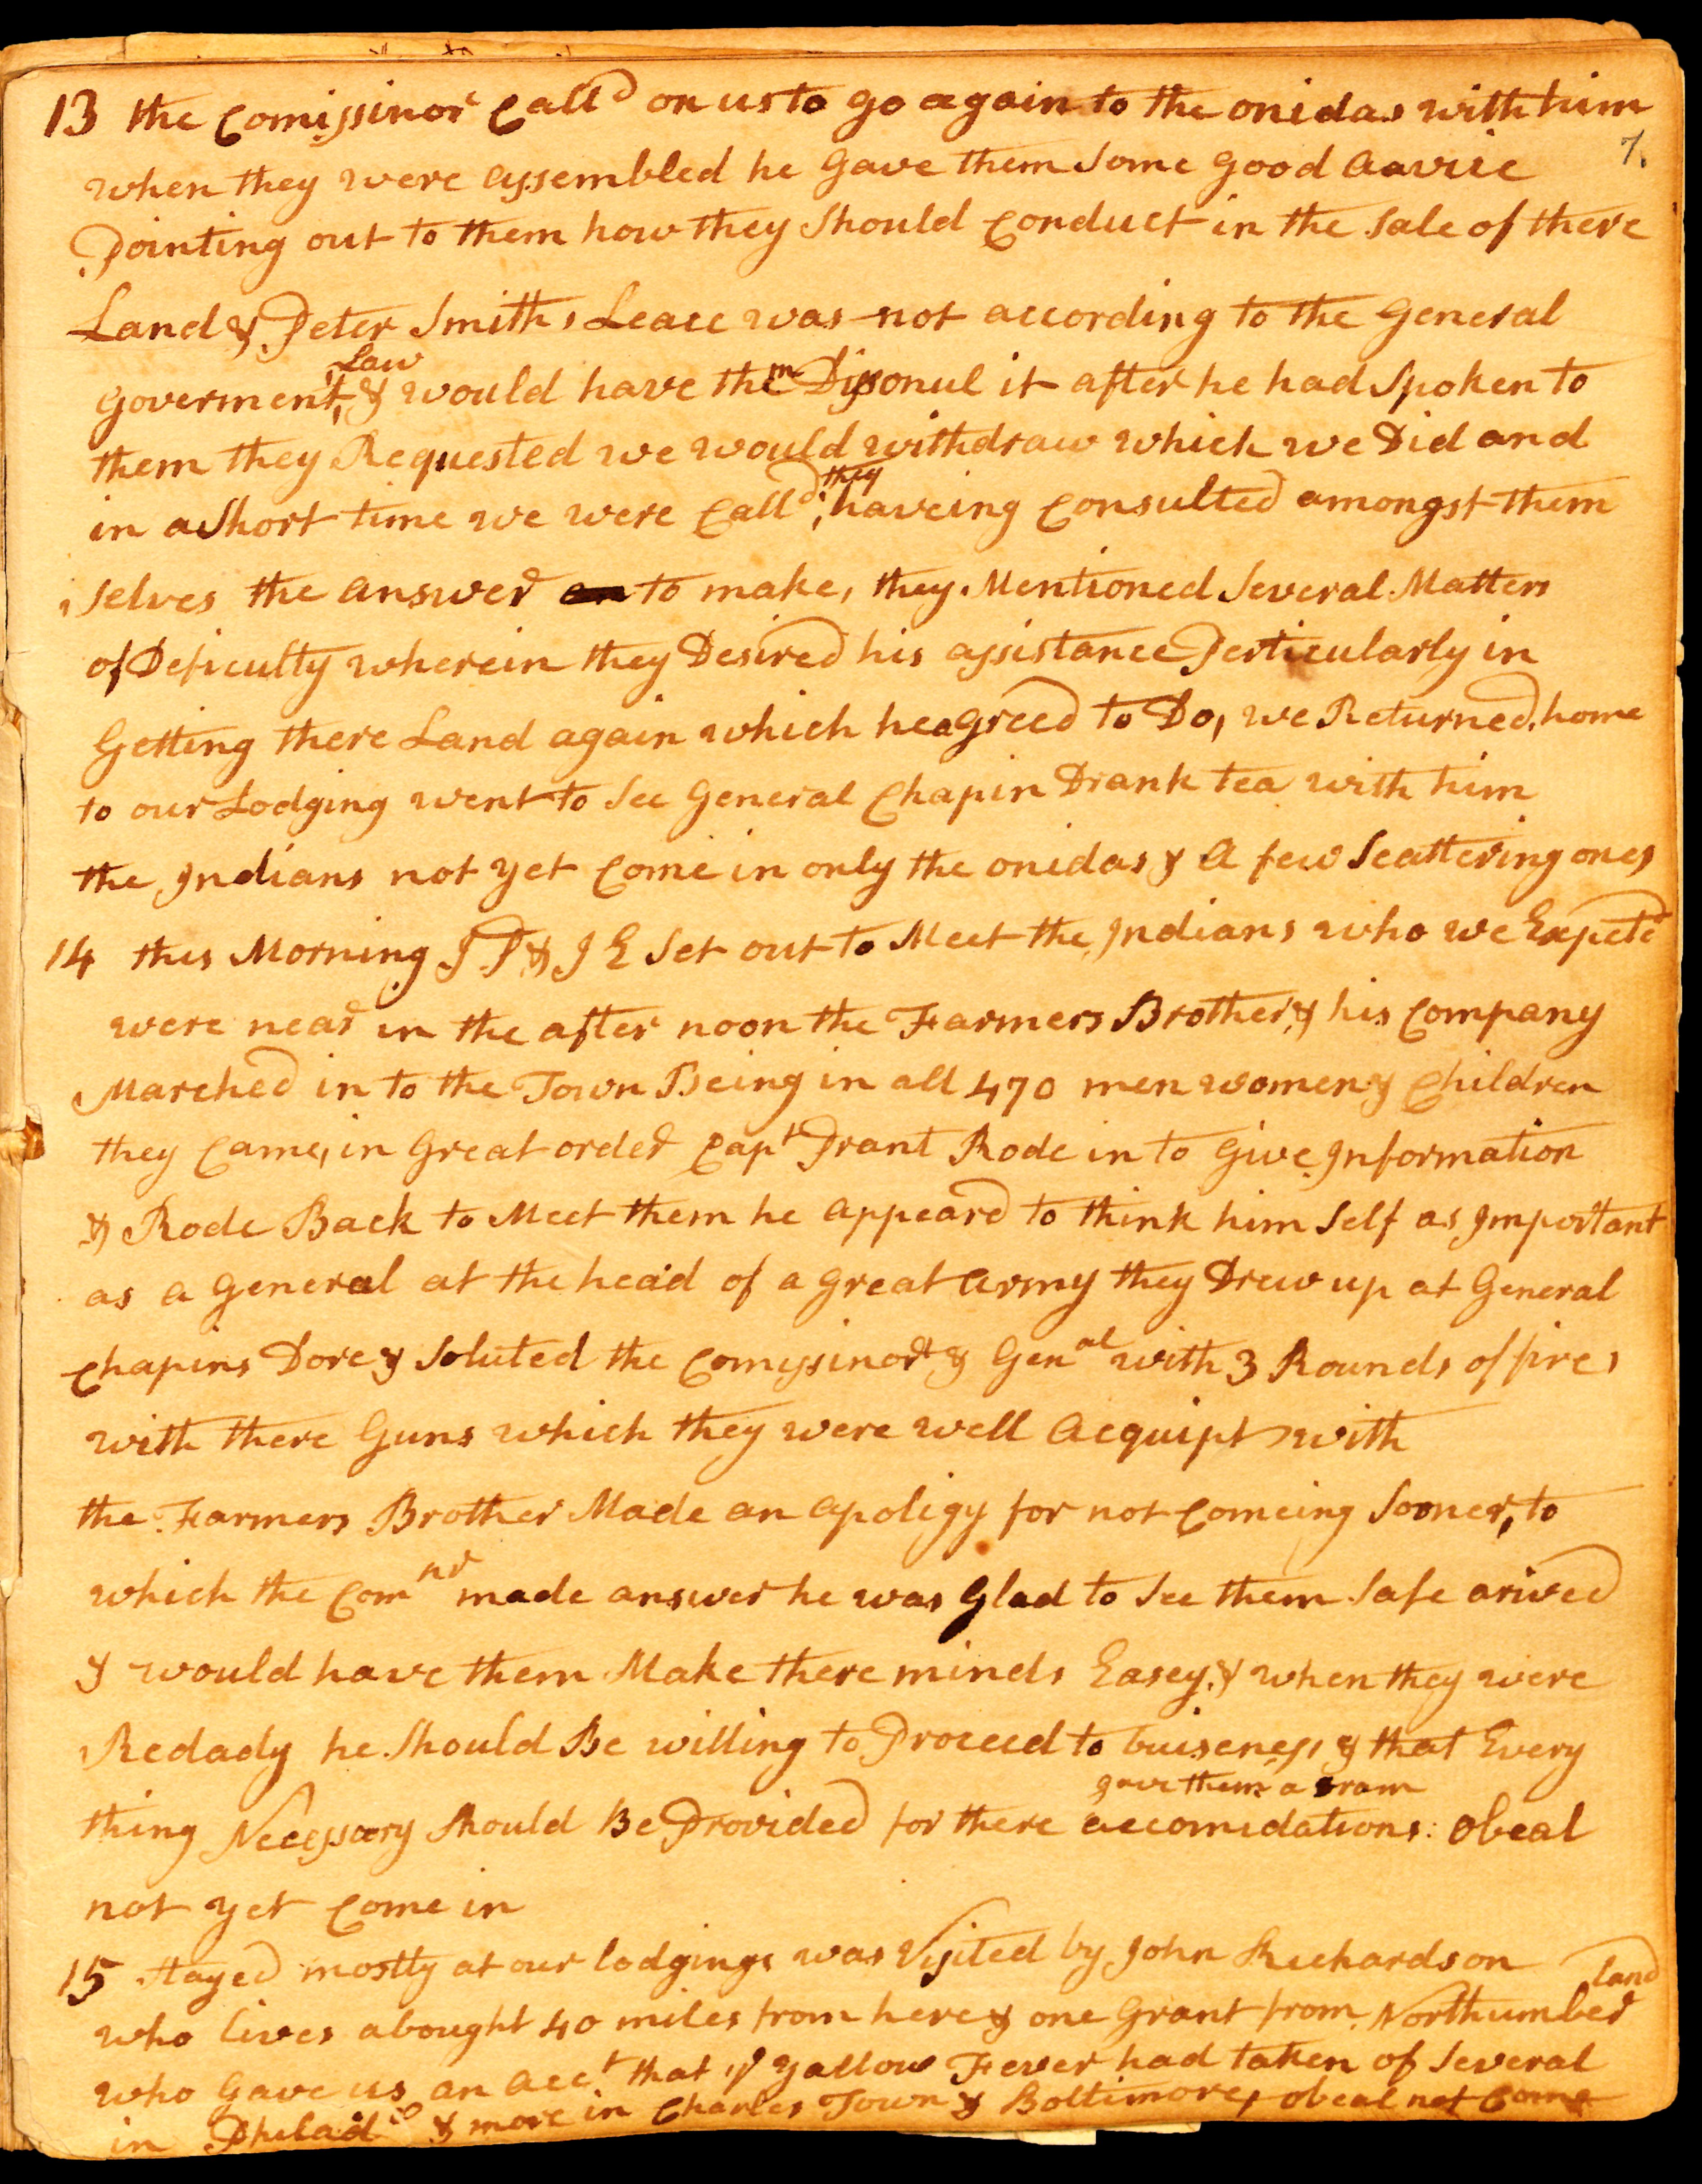 13 the Comissinor Calld on us to go again to the onidas with him
7.
when they were assembled he Gave them Some Good advise
Pointing out to them how they Should Conduct in the Sale of there
Land & Peter Smiths Leace was not according to the General
Goverment Law & would have them Dissonul it after he had Spoken to
them they Requested we would withdraw which we Did and
in a Short time we were Calld, they haveing Consulted amongst them
selves the answer to make, they Mentioned Several Matters
of Deficulty wherein they Desired his assistance Perticularly in
Getting there Land again which he agreed to Do, we Returned home
to our Lodging went to See General Chapin Drank tea with him
the Indians not yet Come in only the onidas & a few Scattering ones
14 this Morning J P & J E Set out to Meet the Indians who we Expectd
were near in the after noon the Farmers Brother & his Company
Marched in to the Town Being in all 470 men women & Children
they Came, in Great order Capt Prant Rode in to Give Information
& Rode Back to Meet them he appeard to think him Self as Important
as a General at the head of a great army they Drew up at General
Chapins Dore & Soluted the Comyssinor & Genal with 3 Rounds of fires
with there Guns which they were well acquipt with
the Farmers Brother Made an apoligy for not Comeing Sooner, to
which the Comnr made answer he was Glad to See them Safe arived
& would have them Make there minds Easey & when they were
Redady he Should Be willing to Proceed to buiseness & that Every
gave them a dram
thing Necessary Should Be Provided for there accomidations: Obeal
not yet Come in
15 Stayed mostly at our lodgings was Visited by John Richardson
who lives abought 40 miles from here & one Grant from Northumberland
who Gave us an acct that ye Yallow Fever had taken of Several
in Philada & more in Charles Town & Boltimore, obeal not Come